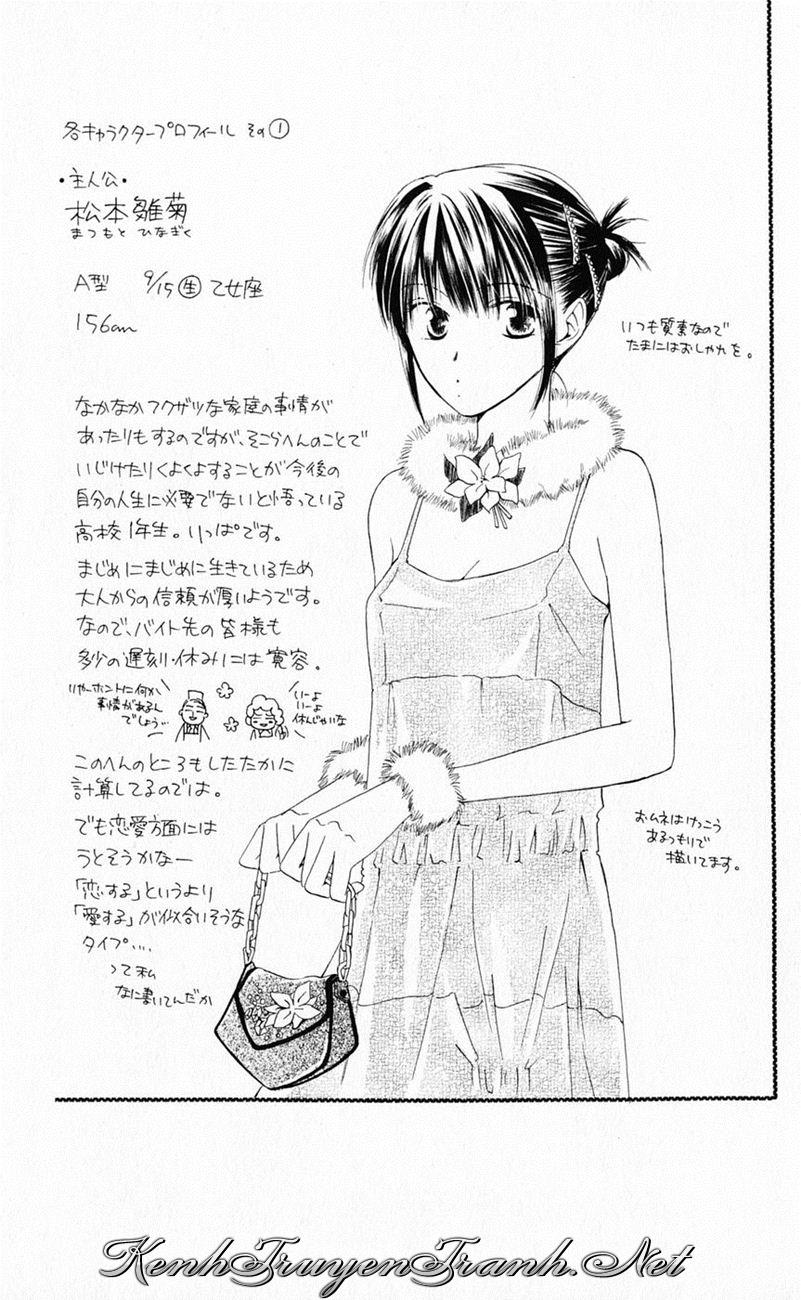 各キャラクタープロフィール その①
・主人公・
松本雛菊
まつもと ひなぎく
A型 9/15㊤ 乙女座
156cm
いつも質素なので
たまにはおしゃれを。
なかなかフクザツな家庭の事情が
あったりもするのですが、そこらへんのことで
いじけたりくよくよすることが今後の
自分の人生に必要でないと悟っている
高校1年生。りっぱです。
まじめにまじめに生きているため
大人からの信頼が厚いようです。
なので、バイト先の皆様も
多少の遅刻・休みには寛容。
いやーホントに何か
事情があるん
でしょう…
いーよ
いーよ
休んじゃいな
このへんのところもしたたかに
計算してるのでは。
でも恋愛方面には
うとそうかなー
「恋する」というより
「愛する」が似合いそうな
タイプ…
って私
なに書いてんだか
おムネはけっこう
あるつもりで
描いてます。
KenhTruyenTranh.Net